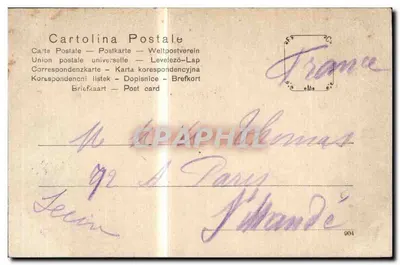 Cartolina Postale
Carte Postale — Postkarte — Weltpostverein
Union postale universelle — Levelező-Lap
Correspondenzkarte - Karta korespondencyjna
Korespondencni listek - Dopisnice - Brefkort
Briefkaart - Post card
France
CARTHAPHILIC
M Thomas
92 A Paris
St Mandé
904